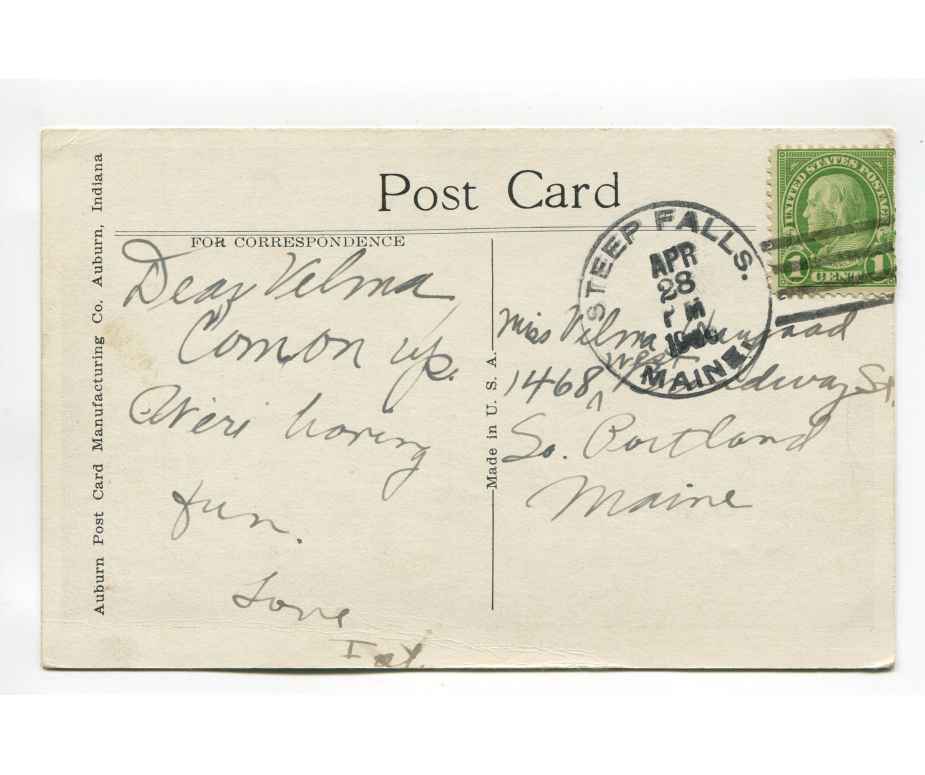 Post Card
FOR CORRESPONDENCE
Auburn Post Card Manufacturing Co. Auburn, Indiana
Dear Velma
Com on up.
We're having
fun.
Love
Made in U. S. A.
UNITED STATES POSTAGE
1 CENT 1
STEEP FALLS.
APR
28
PM
MAINE
Miss Velma
1468 West St.
So. Portland
Maine